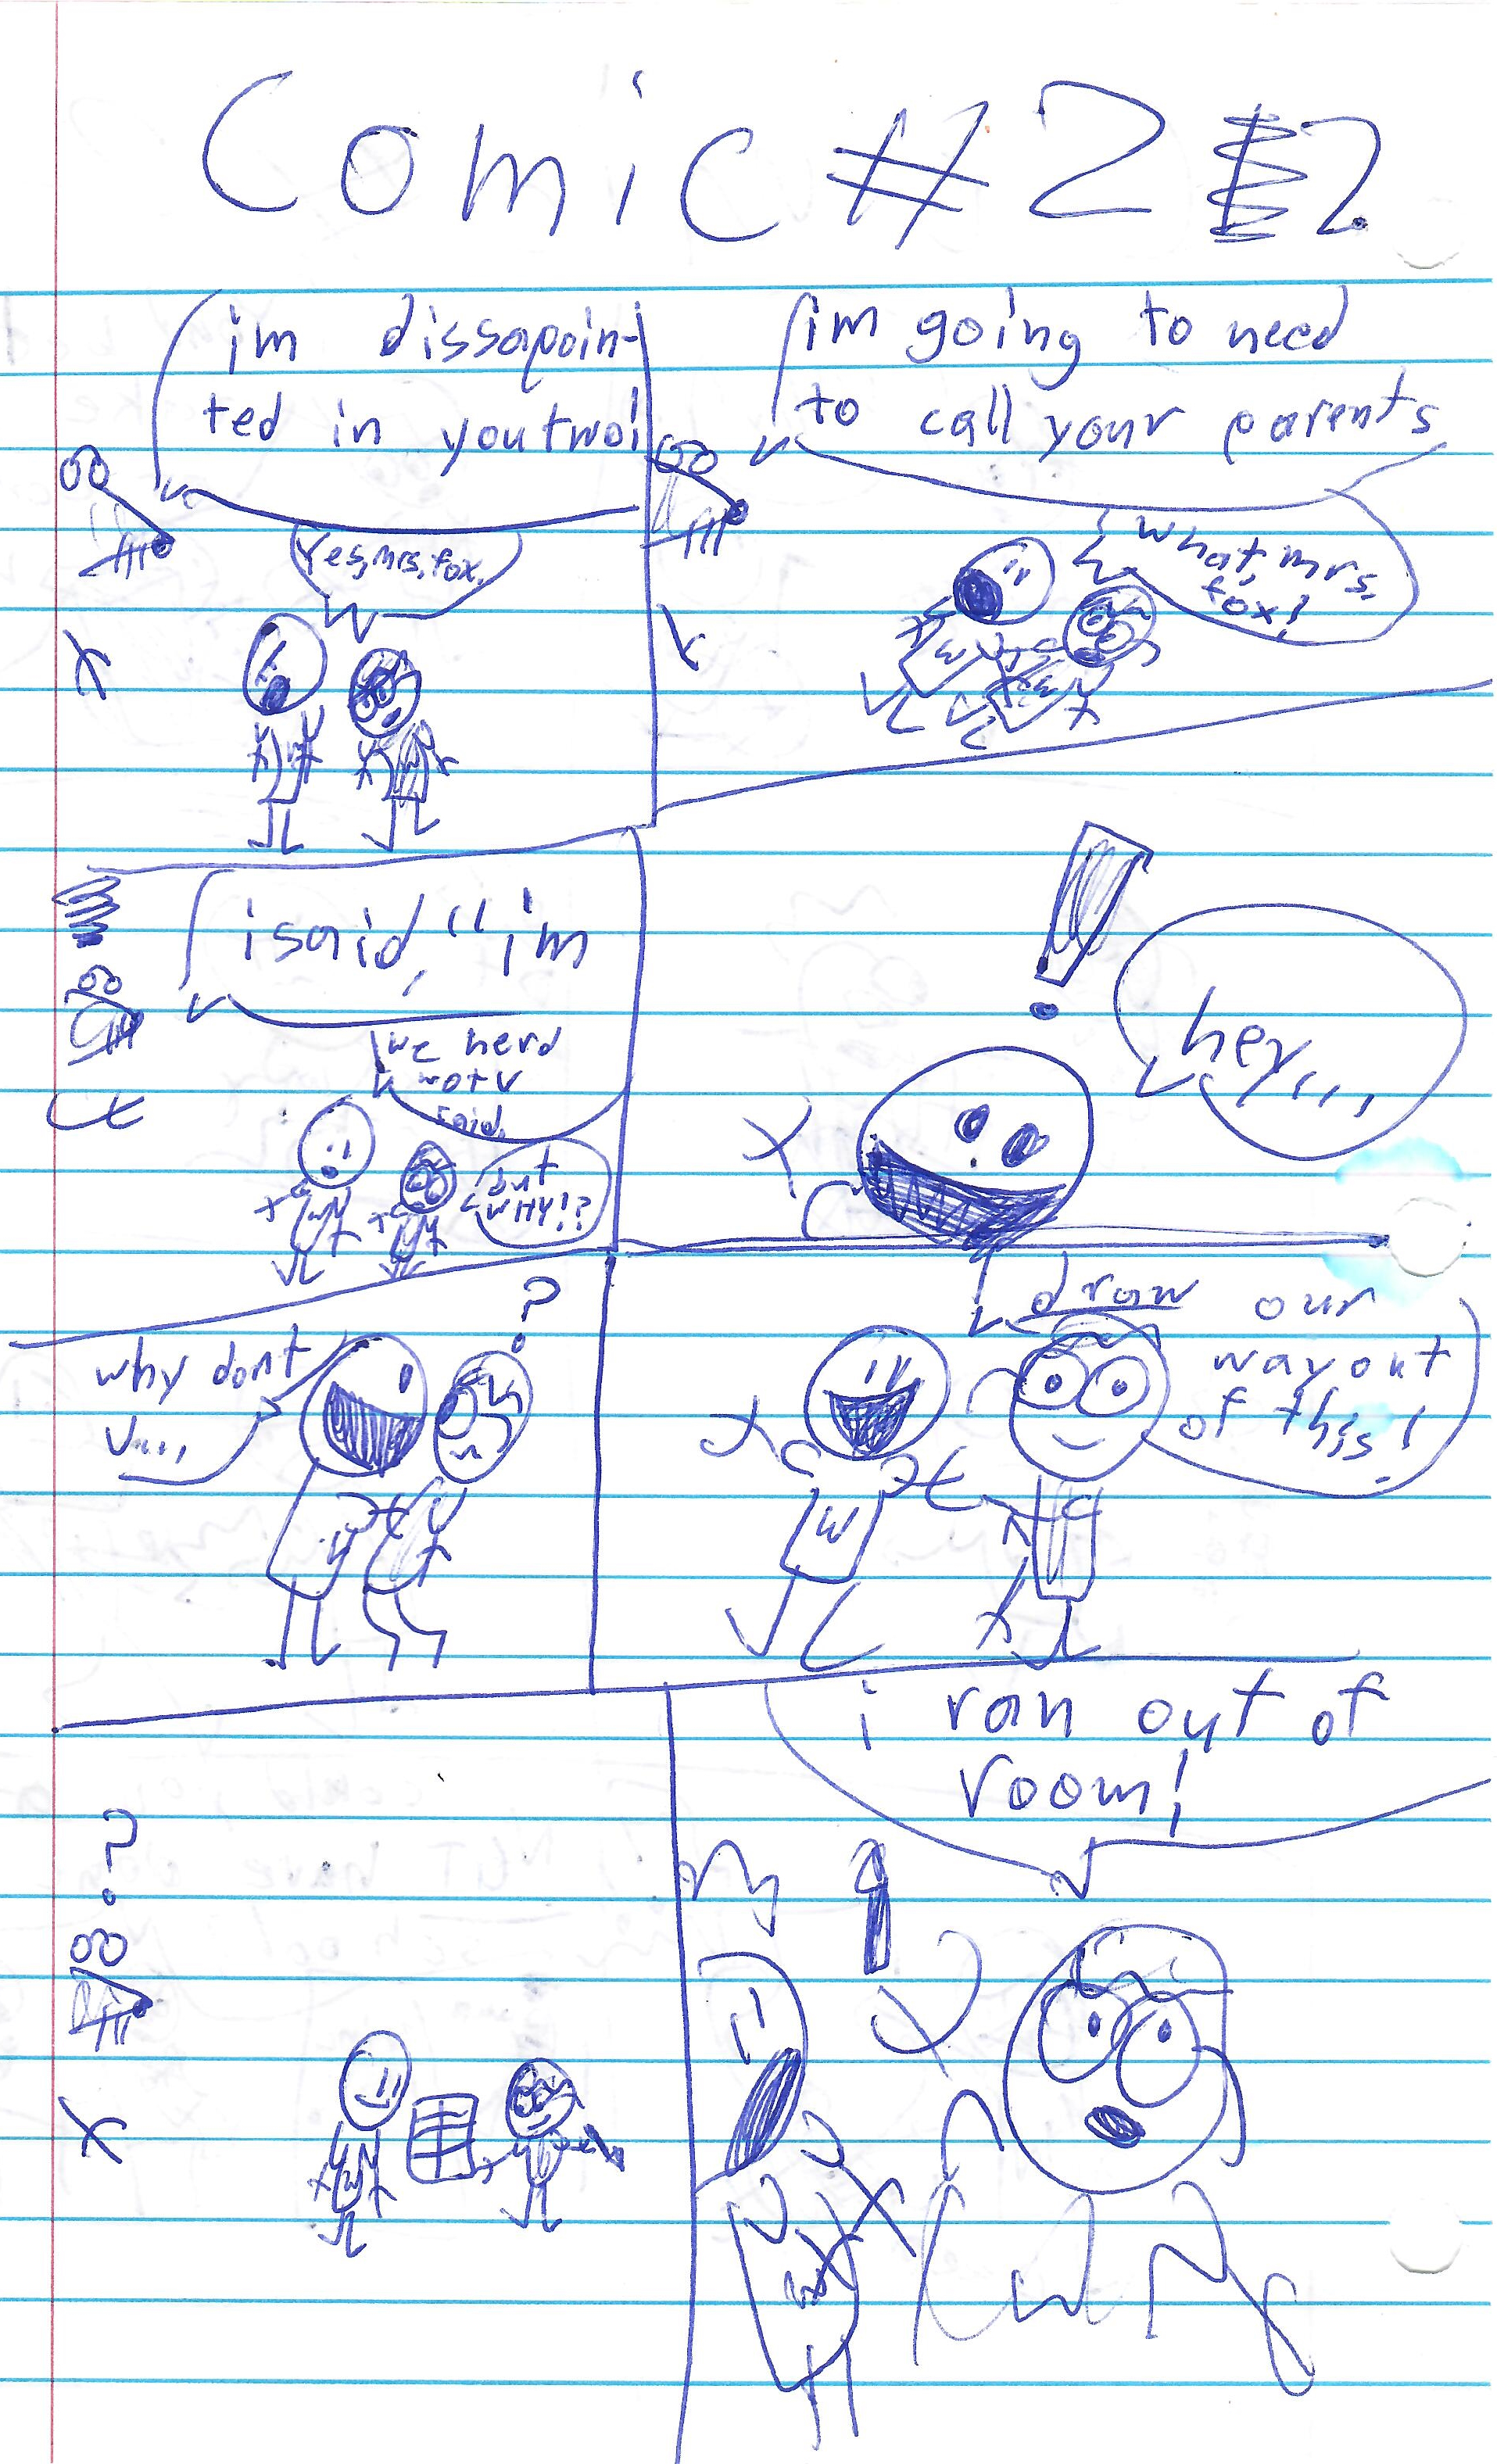 Comic #2 2.
im dissapoin-
ted in you two!
Yes, mrs. fox.
im going to need
to call your parents
what, mrs.
fox!
i said, "im
we herd
wot v
said.
but
WHY!?
hey,,,
why dont
v....
?
draw our
way out
of this!
?
i ran out of
room!
W
W